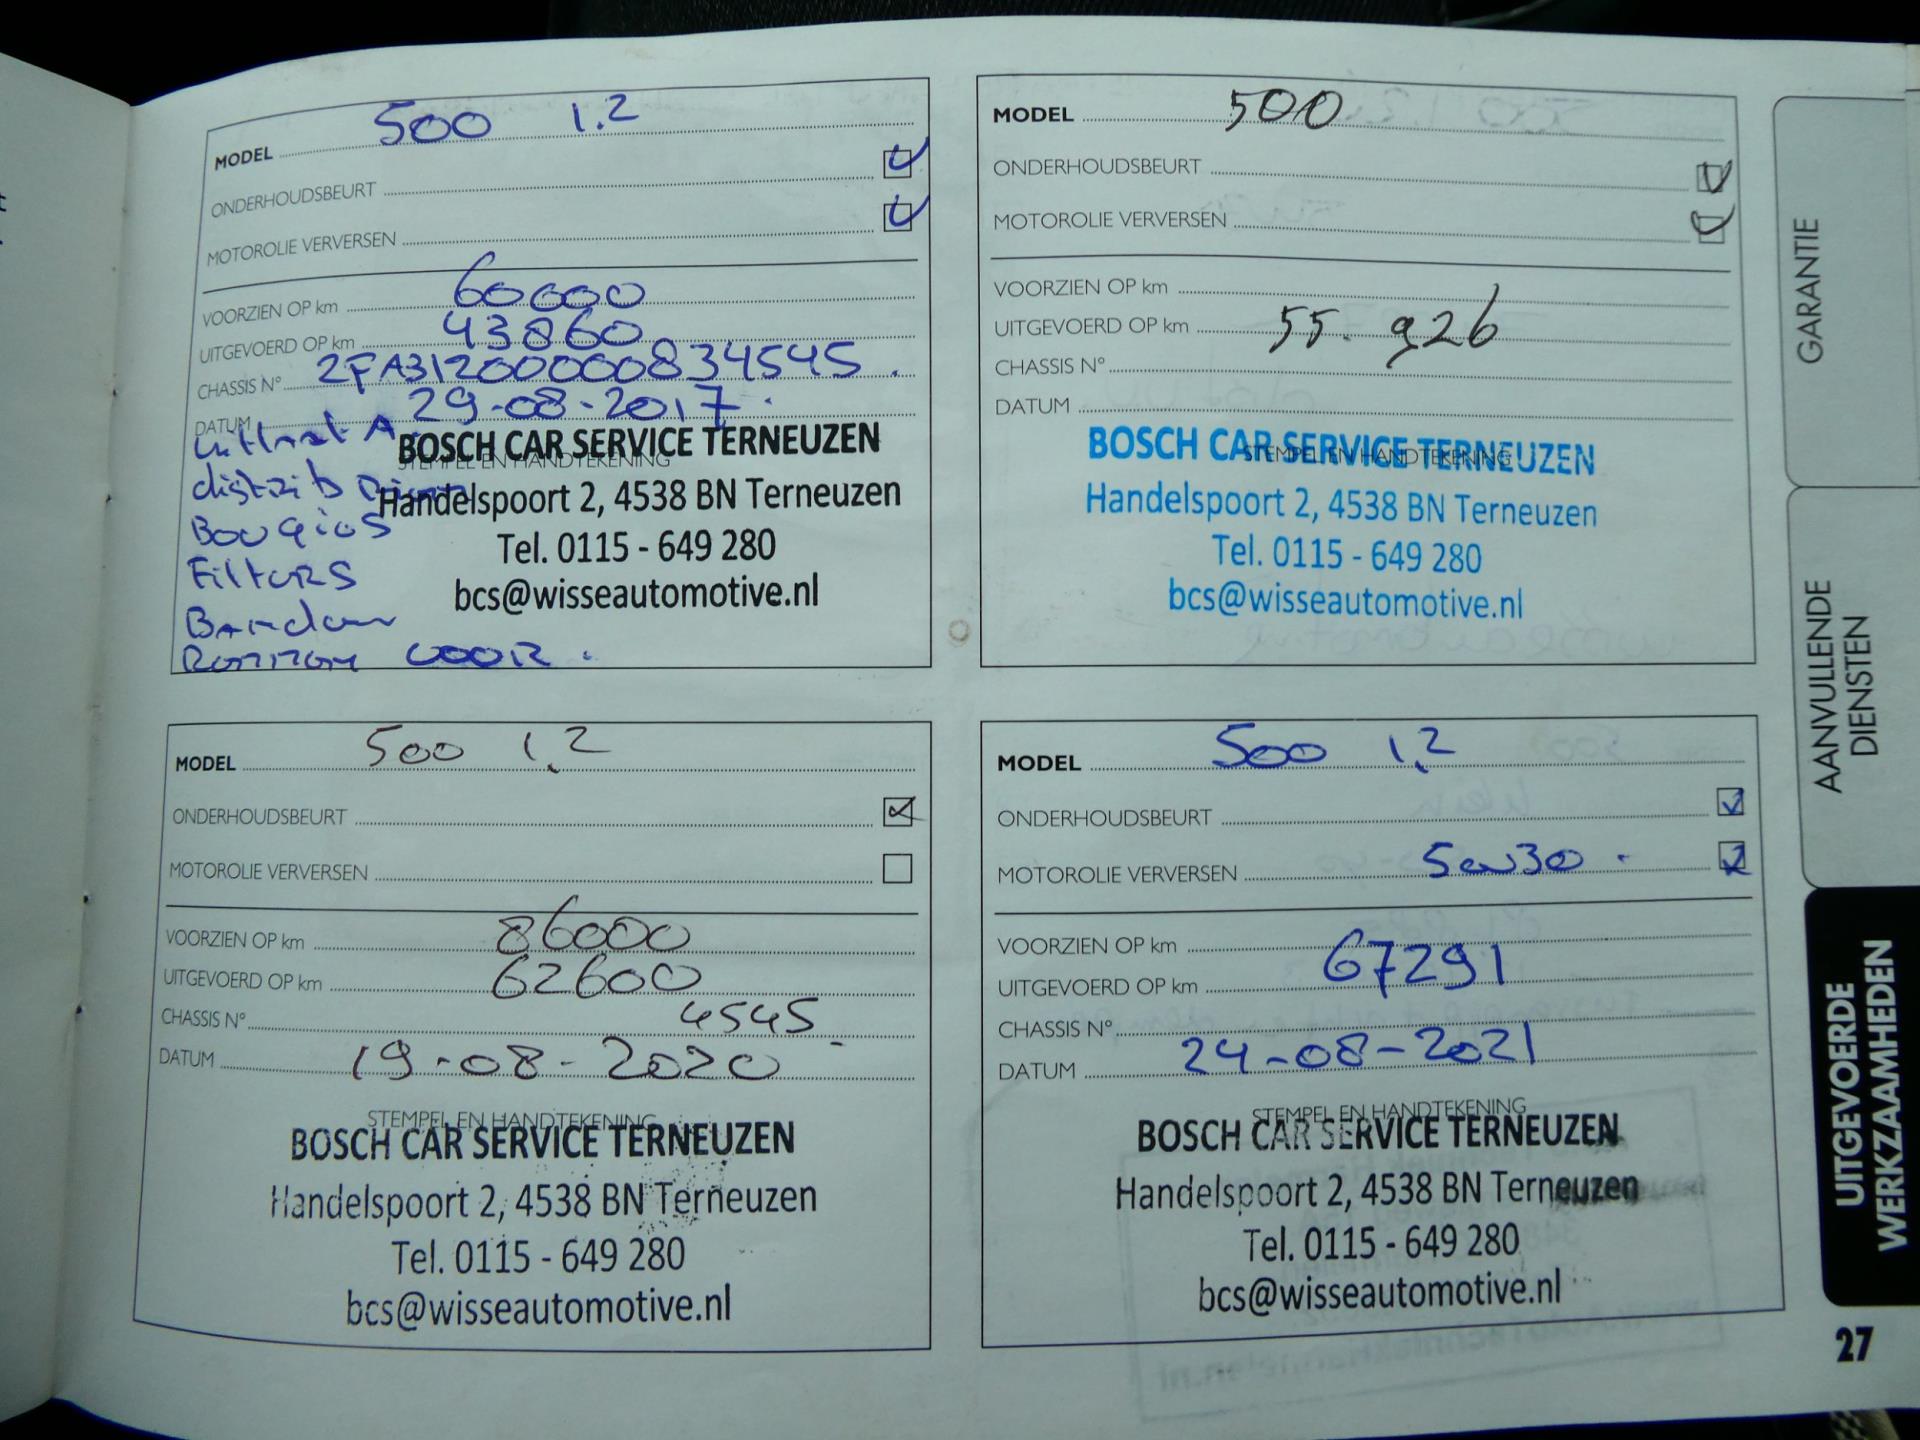 MODEL 500 1.2
ONDERHOUDSBEURT
MOTOROLIE VERVERSEN
VOORZIEN OP km 60000
UITGEVOERD OP km 43860
CHASSIS N° 2FA31200000834545.
DATUM 29-08-2017
STEMPEL EN HANDTEKENING
BOSCH CAR SERVICE TERNEUZEN
Handelspoort 2, 4538 BN Terneuzen
Tel. 0115 - 649 280
bcs@wisseautomotive.nl
distrib Riem
Bougies
Filters
Banden
Remmen voor.
MODEL 500
ONDERHOUDSBEURT
MOTOROLIE VERVERSEN
VOORZIEN OP km
UITGEVOERD OP km 55.926
CHASSIS N°
DATUM
STEMPEL EN HANDTEKENING
BOSCH CAR SERVICE TERNEUZEN
Handelspoort 2, 4538 BN Terneuzen
Tel. 0115 - 649 280
bcs@wisseautomotive.nl
MODEL 500 1.2
ONDERHOUDSBEURT
MOTOROLIE VERVERSEN
VOORZIEN OP km 86000
UITGEVOERD OP km 62600
CHASSIS N° 4545
DATUM 19-08-2020
STEMPEL EN HANDTEKENING
BOSCH CAR SERVICE TERNEUZEN
Handelspoort 2, 4538 BN Terneuzen
Tel. 0115 - 649 280
bcs@wisseautomotive.nl
MODEL 500 1.2
ONDERHOUDSBEURT
MOTOROLIE VERVERSEN 5w30
VOORZIEN OP km
UITGEVOERD OP km 67291
CHASSIS N°
DATUM 24-08-2021
STEMPEL EN HANDTEKENING
BOSCH CAR SERVICE TERNEUZEN
Handelspoort 2, 4538 BN Terneuzen
Tel. 0115 - 649 280
bcs@wisseautomotive.nl
GARANTIE
AANVULLENDE
DIENSTEN
UITGEVOERDE
WERKZAAMHEDEN
27